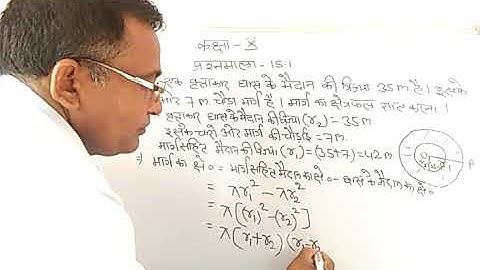 कक्षा - X
प्रश्नमाला - 15.1
एक वृत्ताकार घास के मैदान की त्रिज्या 35 m है। इसके
7 m चौड़ा मार्ग है। मार्ग का क्षेत्रफल ज्ञात करना।
वृत्ताकार घास के मैदान की त्रिज्या (r₂) = 35m
इसके चारों ओर मार्ग की चौड़ाई = 7m.
मार्ग सहित मैदान की त्रिज्या (r₁) = (35+7) = 42m
⇒ मार्ग का क्षे० = मार्ग सहित मैदान का क्षे० - घास के मैदान का क्षे०
= πr₁² - πr₂²
= π[(r₁)² - (r₂)²]
= π(r₁+r₂)(r₁-r₂